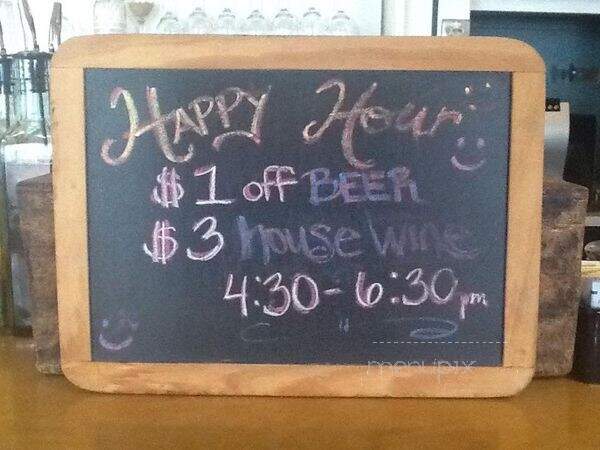 Happy Hour
$1 off BEER
$3 house wine
4:30-6:30pm
menupix